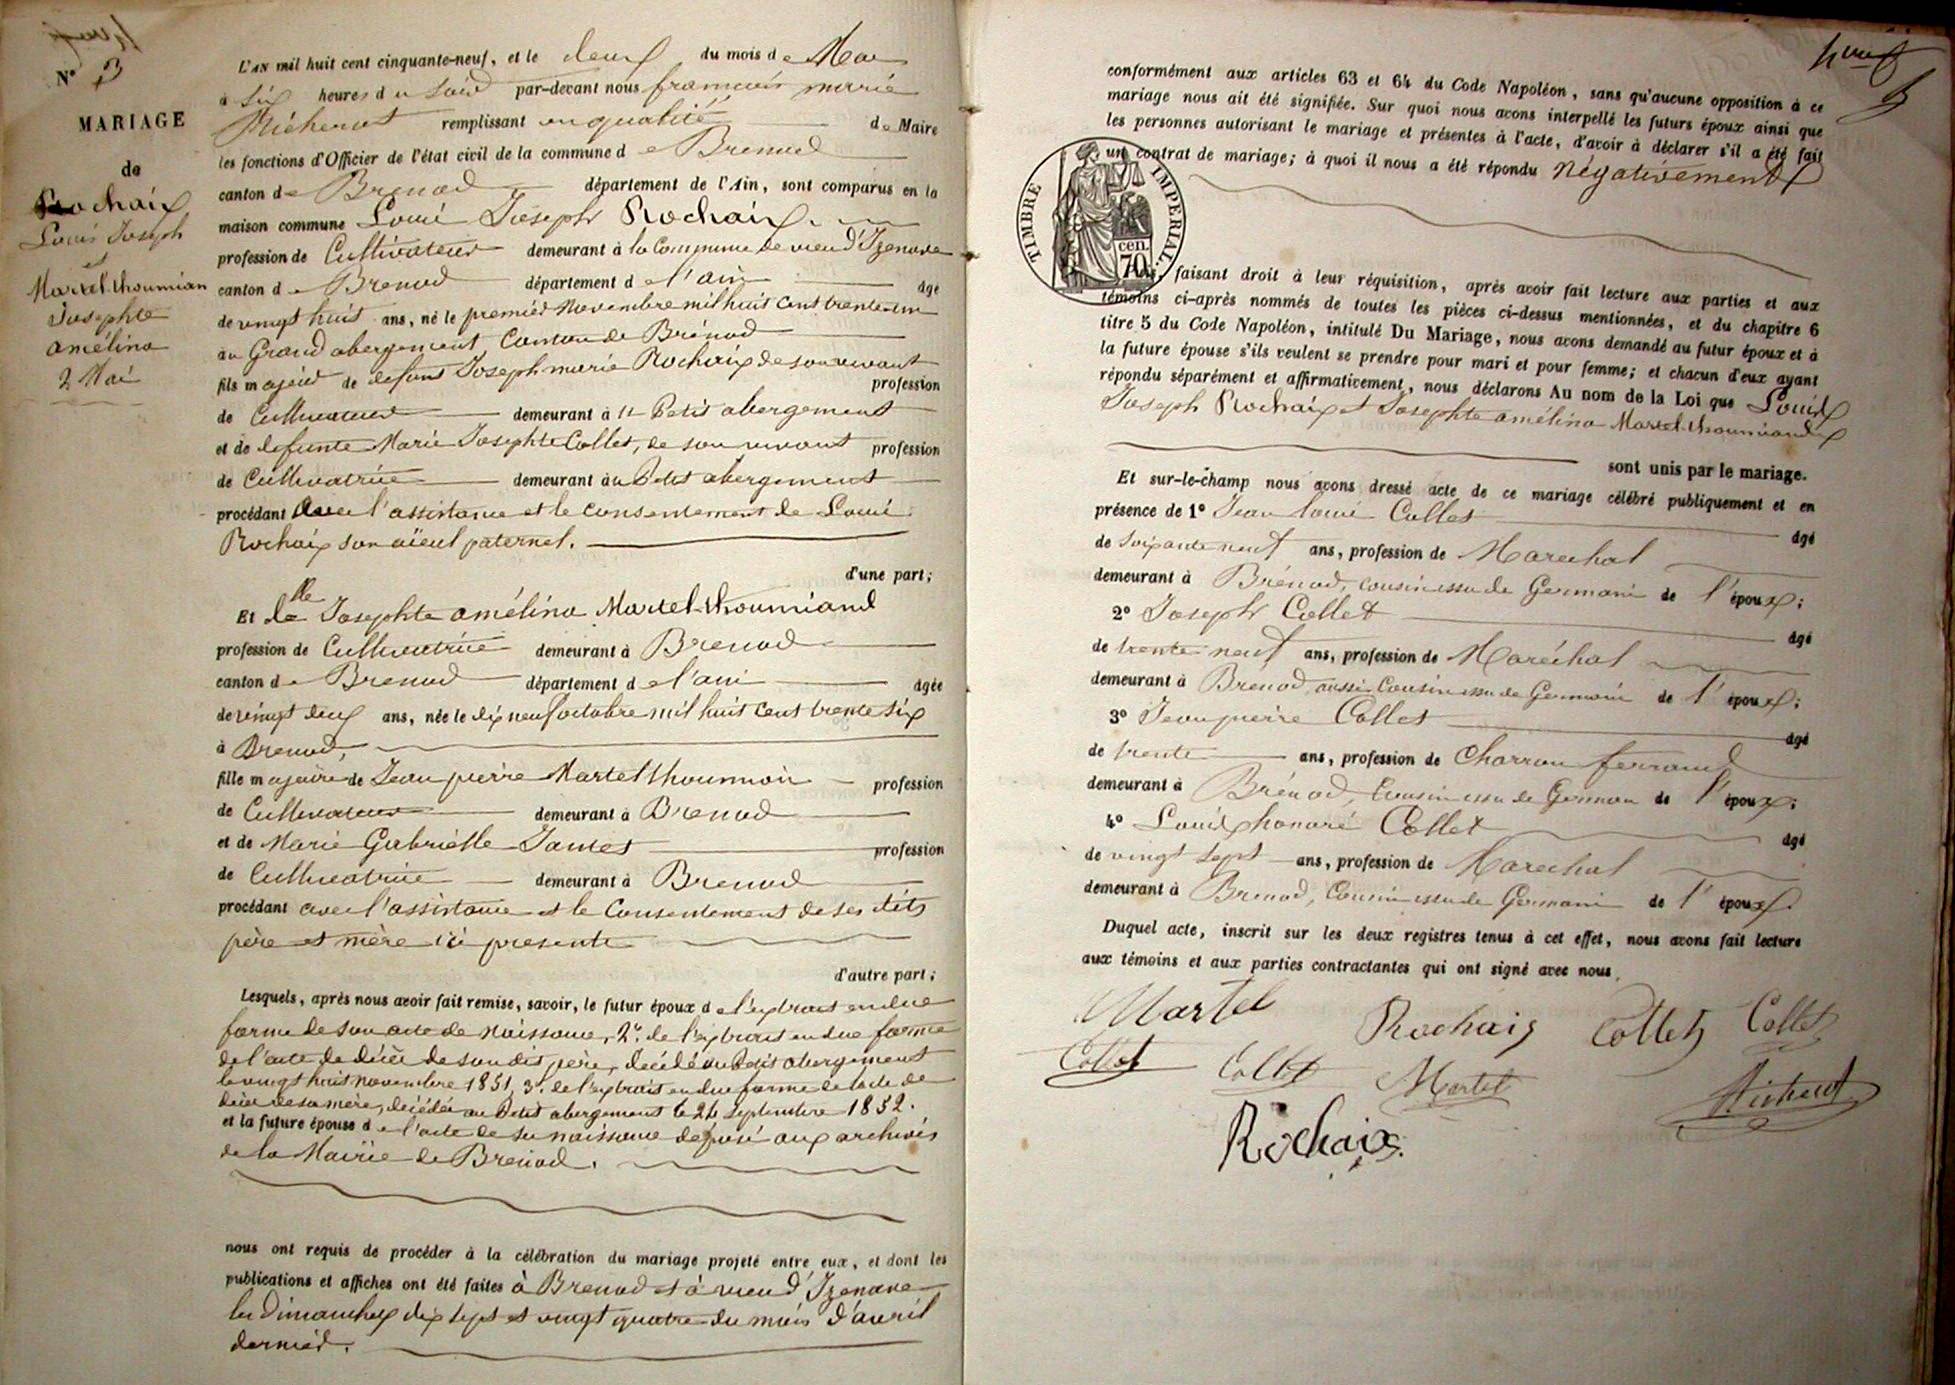 N° 3
MARIAGE
de
Rochaix
Louis Joseph
et
Martel-thoumian
Josephte
amélina
2 Mai
L'AN mil huit cent cinquante-neuf, et le deux du mois de Mai
à Six heures du soir par-devant nous francois marie
remplissant en qualité de Maire
les fonctions d'Officier de l'état civil de la commune de Brenod
canton de Brenod département de l'Ain, sont comparus en la
maison commune Loui Joseph Rochaix.
profession de Cultivateur demeurant à la Commune de vieu d'Izenave
canton de Brenod département de l'ain âgé
de vingt huit ans, né le premier Novembre mil huit cent trente-un
au Grand abergement Canton de Brénod
fils majeur de defunt Joseph marie Rochaix de son vivant profession
de Cultivateur demeurant à u Petit abergement
et de defunte Marie Josephte Collet, de son vivant profession
de Cultivatrice demeurant au Petit abergement
procédant avec l'assistance et le consentement de Loui
Rochaix son aïeul paternel.
d'une part;
Et dlle Josephte amélina Martel-thoumiand
profession de Cultivatrice demeurant à Brenod
canton de Brenod département de l'ain âgée
de vingt deux ans, née le dix neuf octobre mil huit cent trente six
à Brenod,
fille majeure de Jean pierre Martel thoumion profession
de Cultivateur demeurant à Brenod
et de Marie Gabrielle Jantet profession
de Cultivatrice demeurant à Brenod
procédant avec l'assistance et le Consentement de ses dits
père et mère ici presents
d'autre part;
Lesquels, après nous avoir fait remise, savoir, le futur époux de l'extrait en due
forme de son acte de Naissance, 2° de l'extrait en due forme
de l'acte de décès de son dit père, decédé au Petit abergement
le vingt huit novembre 1851, 3° de l'extrait en due forme de l'acte de
décès de sa mère, decédée au Petit abergement le 24 septembre 1852.
et la future épouse de l'acte de sa naissance déposé aux archives
de la Mairie de Brenod.
nous ont requis de procéder à la célébration du mariage projeté entre eux, et dont les
publications et affiches ont été faites à Brenod et à vieu d'Izenave
les dimanches dix sept et vingt quatre du mois d'avril
dernier.
conformément aux articles 63 et 64 du Code Napoléon, sans qu'aucune opposition à ce
mariage nous ait été signifiée. Sur quoi nous avons interpellé les futurs époux ainsi que
les personnes autorisant le mariage et présentes à l'acte, d'avoir à déclarer s'il a été fait
un contrat de mariage; à quoi il nous a été répondu négativement
TIMBRE IMPERIAL.
70 cen.
faisant droit à leur réquisition, après avoir fait lecture aux parties et aux
témoins ci-après nommés de toutes les pièces ci-dessus mentionnées, et du chapitre 6
titre 5 du Code Napoléon, intitulé Du Mariage, nous avons demandé au futur époux et à
la future épouse s'ils veulent se prendre pour mari et pour femme; et chacun d'eux ayant
répondu séparément et affirmativement, nous déclarons Au nom de la Loi que Louis
Joseph Rochaix et Josephte amélina Martel-thoumiand
sont unis par le mariage.
Et sur-le-champ nous avons dressé acte de ce mariage célébré publiquement et en
présence de 1° Jean loui Collet âgé
de soixante neuf ans, profession de Marechal
demeurant à Brénod, cousin issu de Germain de l'époux;
2° Joseph Collet âgé
de trente neuf ans, profession de Maréchal
demeurant à Brenod, aussi Cousin issu de Germain de l'époux;
3° Jean pierre Collet âgé
de trente ans, profession de Charron ferrand
demeurant à Brénod, Cousin issu de Germain de l'époux;
4° Louis honoré Collet âgé
de vingt sept ans, profession de Marechal
demeurant à Brenod, Cousin issu de Germain de l'époux.
Duquel acte, inscrit sur les deux registres tenus à cet effet, nous avons fait lecture
aux témoins et aux parties contractantes qui ont signé avec nous.
Martel Rochaix Collet Collet
Collet Collet Martel
Rochaix